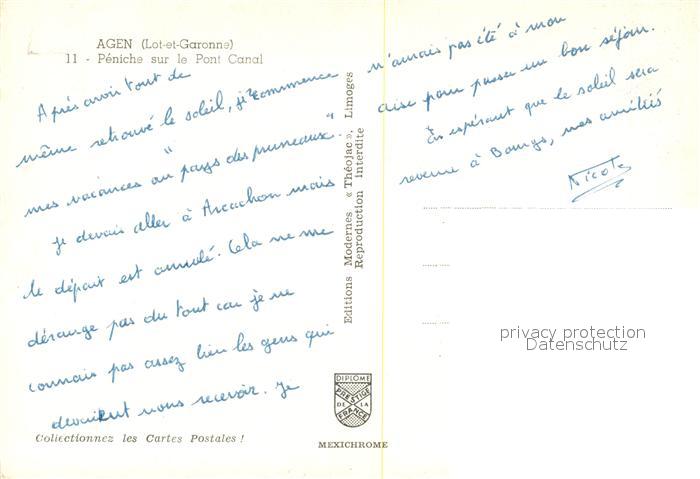 AGEN (Lot-et-Garonne)
11 - Péniche sur le Pont Canal
Après avoir tout de
même retrouvé le soleil, je commence
mes vacances au "pays des pruneaux".
Je devais aller à Arcachon mais
le départ est annulé. Cela ne me
dérange pas du tout car je ne
connais pas assez bien les gens qui
devaient nous recevoir. Je
Collectionnez les Cartes Postales !
Editions Modernes « Théojac », Limoges
Reproduction Interdite
DIPLOME
PRESTIGE
DE LA
FRANCE
MEXICHROME
n'aurais pas été à mon
aise pour passer un bon séjour.
En espérant que le soleil sera
revenu à Bourges, mes amitiés
Nicole
privacy protection
Datenschutz